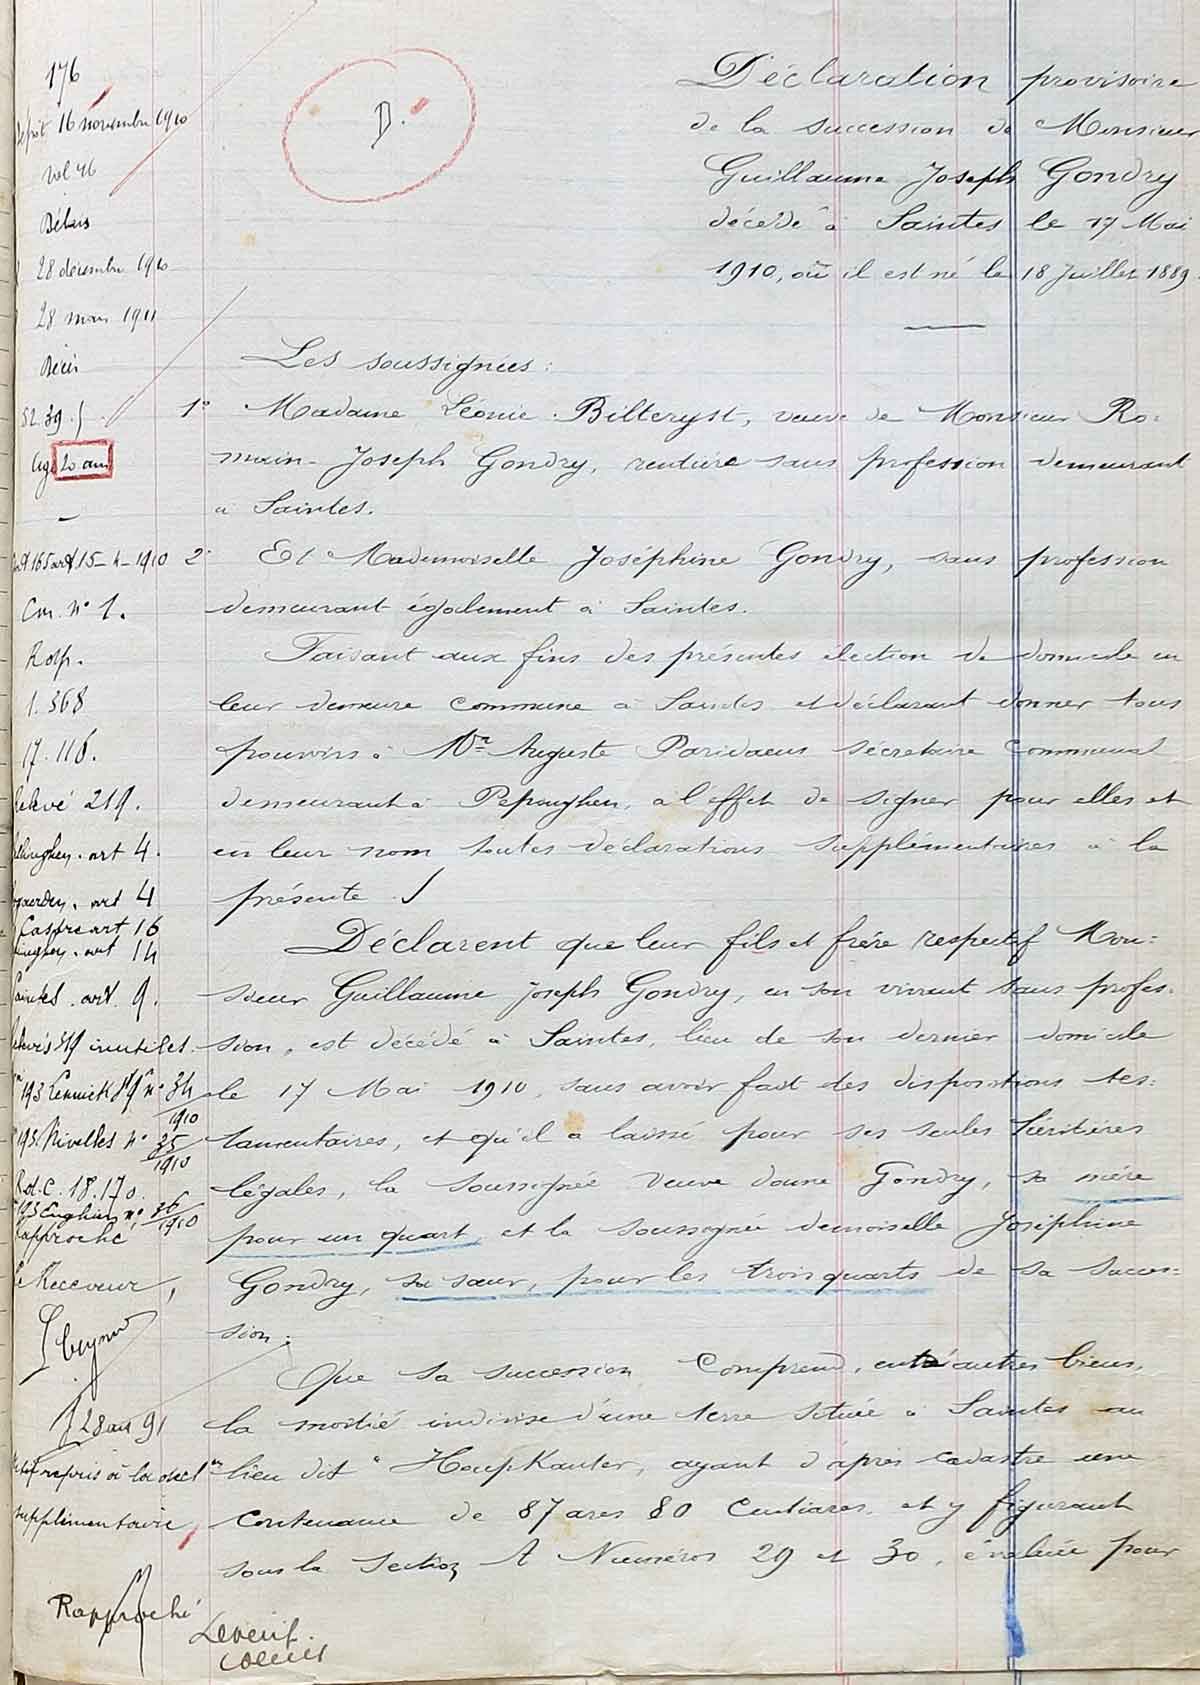 Déclaration provisoire
de la succession de Monsieur
Guillaume Joseph Gondry
décédé à Saintes le 17 Mai
1910, où il est né le 18 Juillet 1889.
D.
176
16 novembre 1910
vol 46
Délais
28 décembre 1910
28 mars 1911
Décès
52.39.
age 20 ans
15-4-1910
Cm. n° 1.
1.368
17.116.
Relevé 219.
art 4.
art 4
art 16
art 14
Saintes. art. 9.
inutiles.
193 Lennick n° 34
1910
193. Nivelles n° 35
1910
18.170.
193 Enghien n° 36
1910
Rapproché
Le Receveur,
repris à la décl on
supplémentaire
Rapproché
Les soussignées :
1° Madame Léonie Bilteryst, veuve de Monsieur Ro=
main-Joseph Gondry, rentière sans profession demeurant
à Saintes.
2° Et Mademoiselle Joséphine Gondry, sans profession
demeurant également à Saintes.
Faisant aux fins des présentes élection de domicile en
leur demeure commune à Saintes et déclarant donner tous
pouvoirs à Mr Auguste Paridaens secrétaire communal
demeurant à Pepinghen, à l'effet de signer pour elles et
en leur nom toutes déclarations supplémentaires à la
présente.
Déclarent que leur fils et frère respectif Mon=
sieur Guillaume Joseph Gondry, en son vivant sans profes=
sion, est décédé à Saintes, lieu de son dernier domicile
le 17 Mai 1910, sans avoir fait des dispositions tes=
tamentaires, et qu'il a laissé pour ses seules héritières
légales, la soussignée veuve dame Gondry, sa mère
pour un quart, et la soussignée demoiselle Joséphine
Gondry, sa sœur, pour les trois quarts de sa succes=
sion.
Que sa succession comprend, entre autres biens,
la moitié indivise d'une terre située à Saintes au
lieu dit " HoupKauter, ayant d'après cadastre une
contenance de 87 ares 80 centiares et y figurant
sous la section A Numéros 29 et 30, évaluée pour